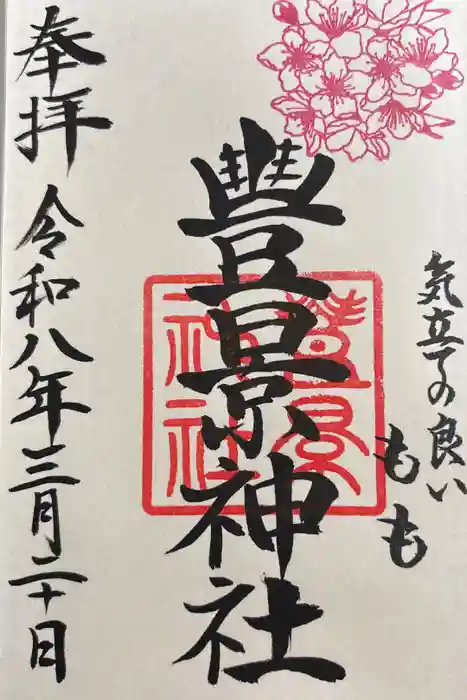 気立ての良い
もも
豊景神社
豊景神社
奉拝
令和八年三月二十日